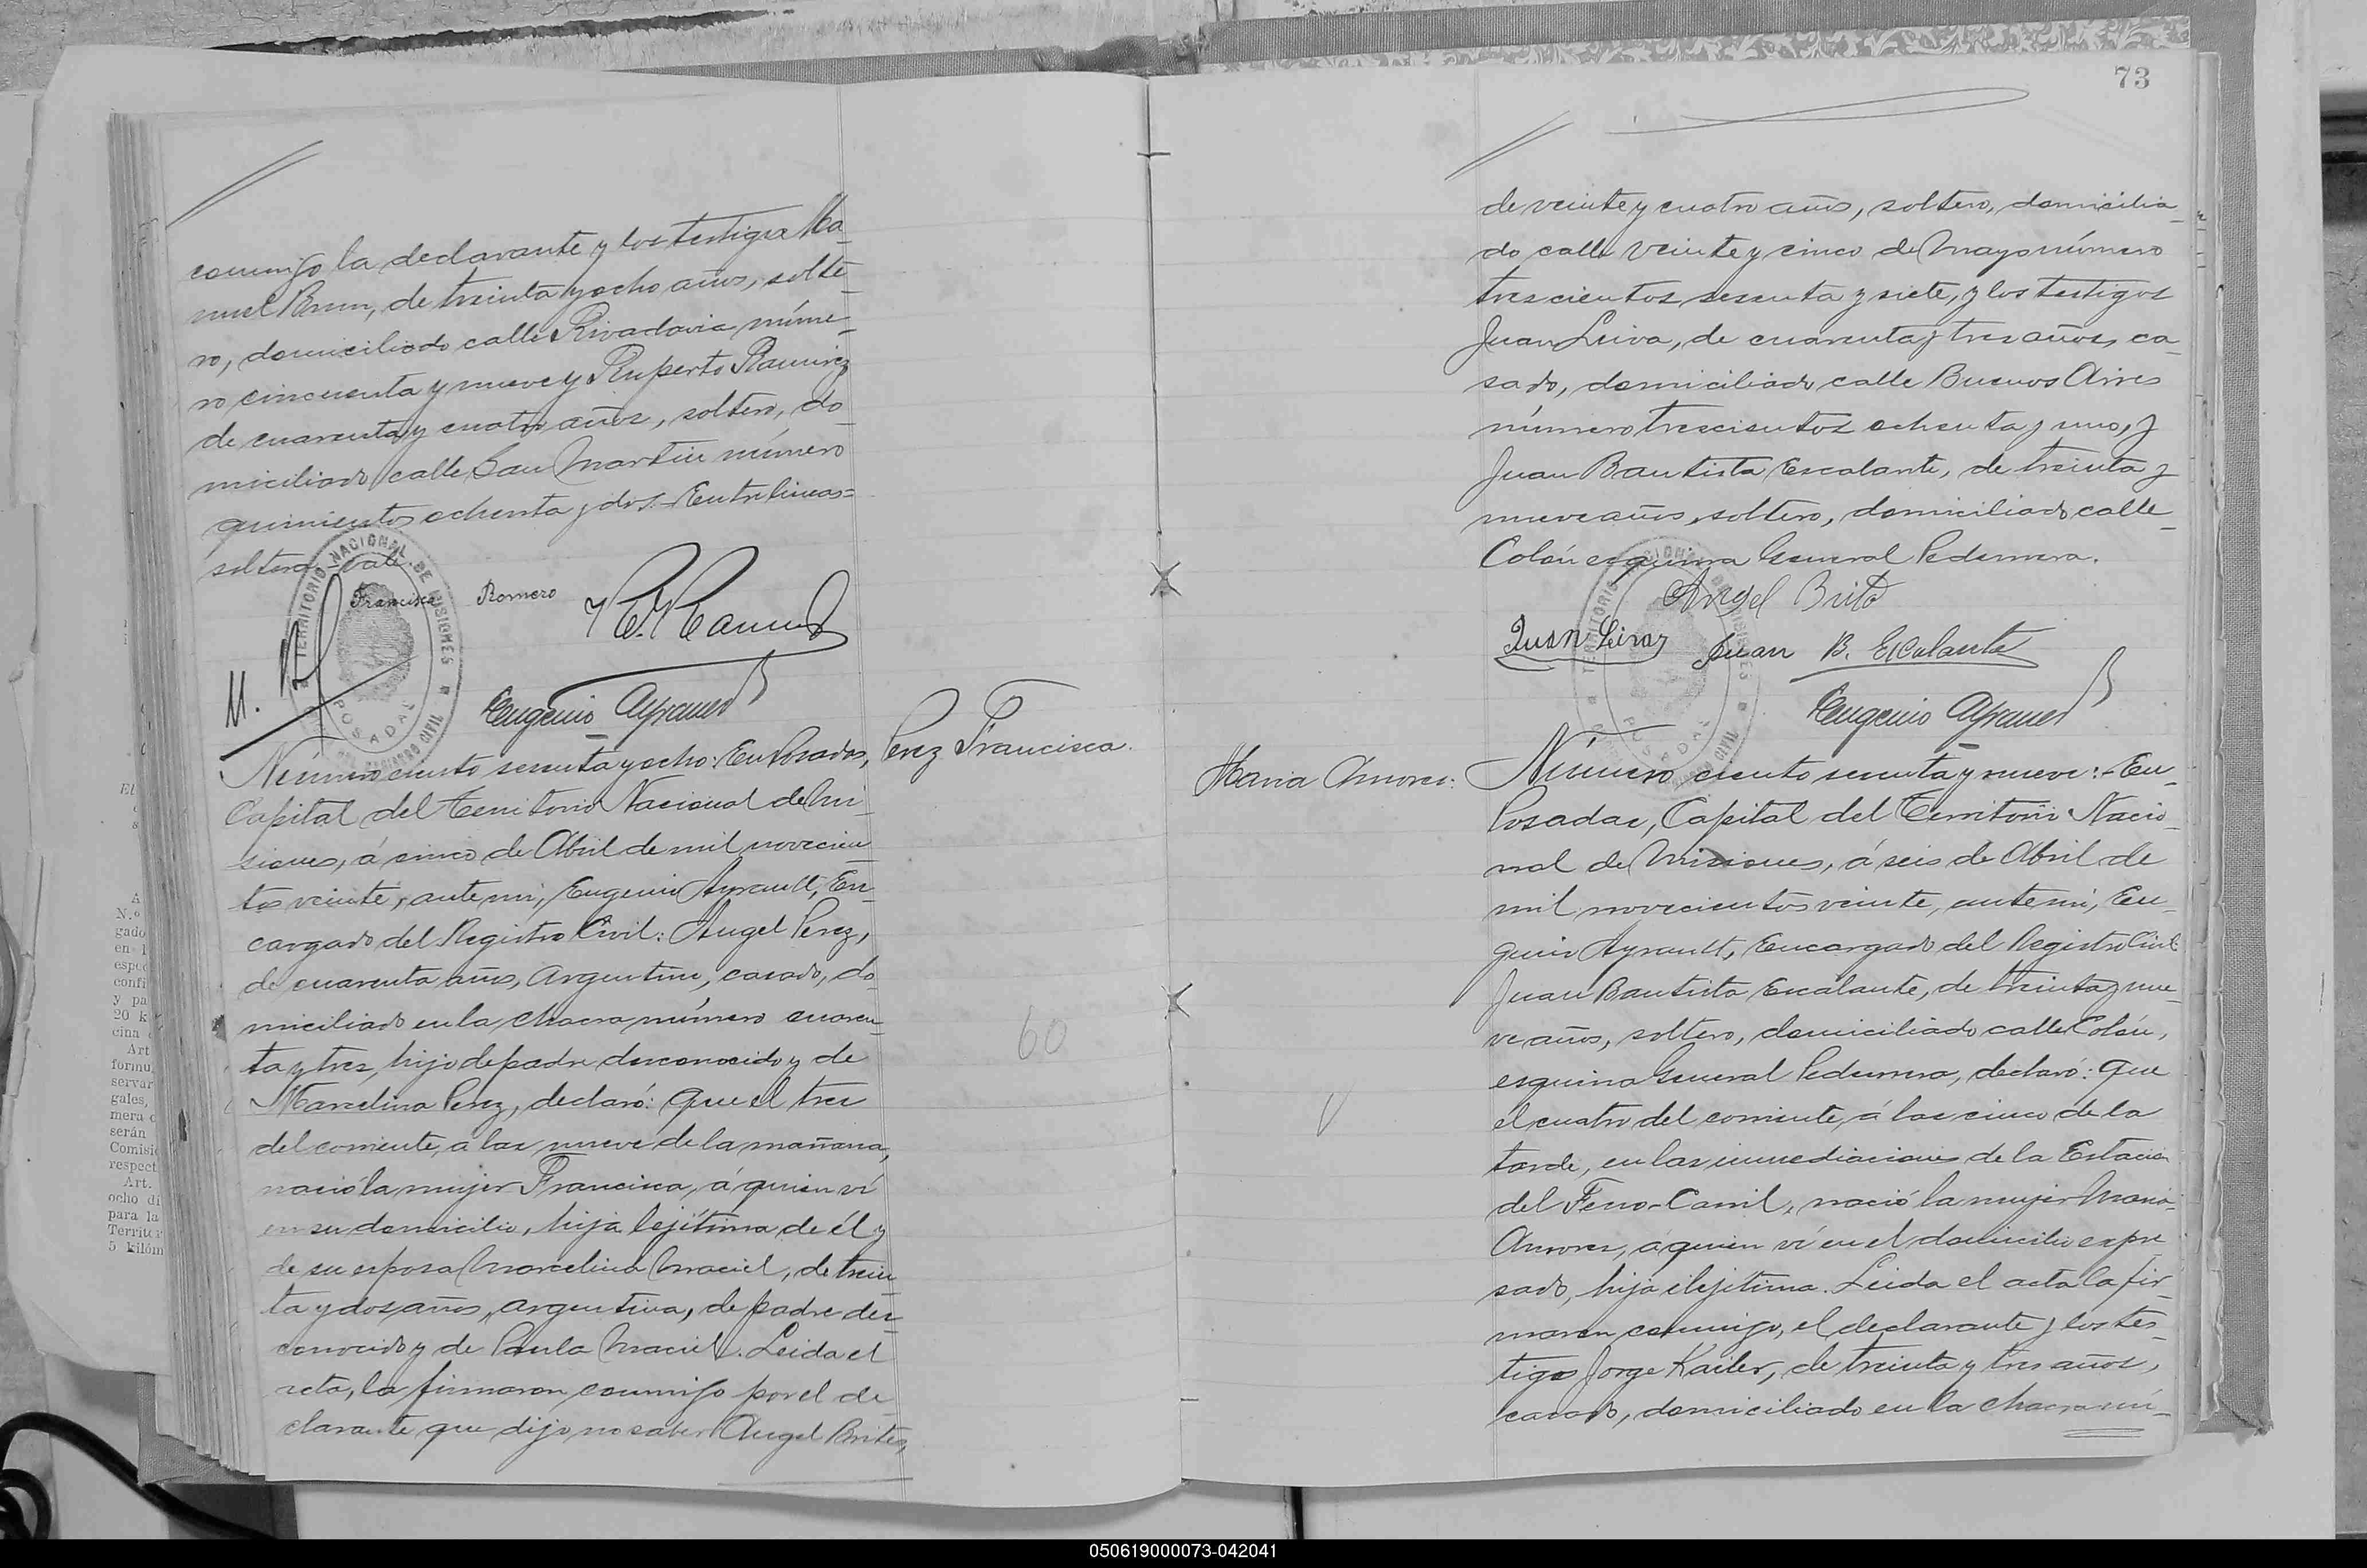 conmigo la declarante y los testigos Ma_
nuel Brun, de treinta y ocho años, solte_
ro, domiciliado calle Rivadavia núme_
ro cincuenta y nueve y Ruperto Ramirez
de cuarenta y cuatro años, soltero, do_
miciliado calle San Martin número
quinientos ochenta y dos.- Entre lineas=
soltera. Vale.
TERRITORIO NACIONAL DE MISIONES
POSADAS
REGISTRO CIVIL
Francisca Romero
R. Ramirez
M. B
Eugenio Ayrault
Perez Francisca.
Número ciento sesenta y ocho: En Posadas,
Capital del Territorio Nacional de Mi_
siones, á cinco de Abril de mil novecien_
tos veinte, ante mi, Eugenio Ayrault, En_
cargado del Registro Civil: Angel Perez,
de cuarenta años, argentino, casado, do_
miciliado en la chacra número cuaren_
ta y tres, hijo de padre desconocido y de
Marcelina Perez, declaró: que el tres
del corriente, a las nueve de la mañana,
nació la mujer Francisca, á quien ví
en su domicilio, hija lejítima de él y
de su esposa Marcelina Maciel, de trein_
ta y dos años, argentina, de padre des_
conocido y de Paula Maciel. Leida el
acta, la firmaron conmigo por el de_
clarante que dijo no saber Angel Brites,
60
73
de veinte y cuatro años, soltero, domicilia_
do calle Veinte y cinco de Mayo número
trescientos sesenta y siete, y los testigos
Juan Leiva, de cuarenta y tres años, ca_
sado, domiciliado calle Buenos Aires
número trescientos ochenta y uno, y
Juan Bautista Escalante, de treinta y
nueve años, soltero, domiciliado calle_
Colón esquina General Pedernera.
Angel Brito
Juan Leiva
Juan B. Escalante
Eugenio Ayrault
Maria Amores:
Número ciento sesenta y nueve:- En_
Posadas, Capital del Territorio Nacio_
nal de Misiones, á seis de Abril de
mil novecientos veinte, ante mi, Eu_
genio Ayrault, Encargado del Registro Civil
Juan Bautista Escalante, de treinta y nue_
ve años, soltero, domiciliado calle Colón,
esquina General Pedernera, declaró: que
el cuatro del corriente, á las cinco de la
tarde, en las inmediaciones de la Estacion
del Ferro-Carril, nació la mujer Maria
Amores, á quien ví en el domicilio expre_
sado, hija ilejítima. Leida el acta la fir_
maron conmigo, el declarante y los tes_
tigos Jorge Kailer, de treinta y tres años,
casado, domiciliado en la chacra nú_
050619000073-042041